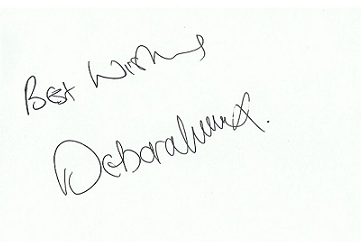 Best Wishes
Deborah